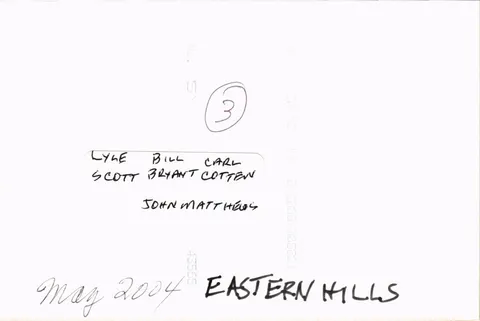 3
LYLE BILL CARL
SCOTT BRYANT COTTEN
JOHN MATTHEWS
May 2004 EASTERN HILLS